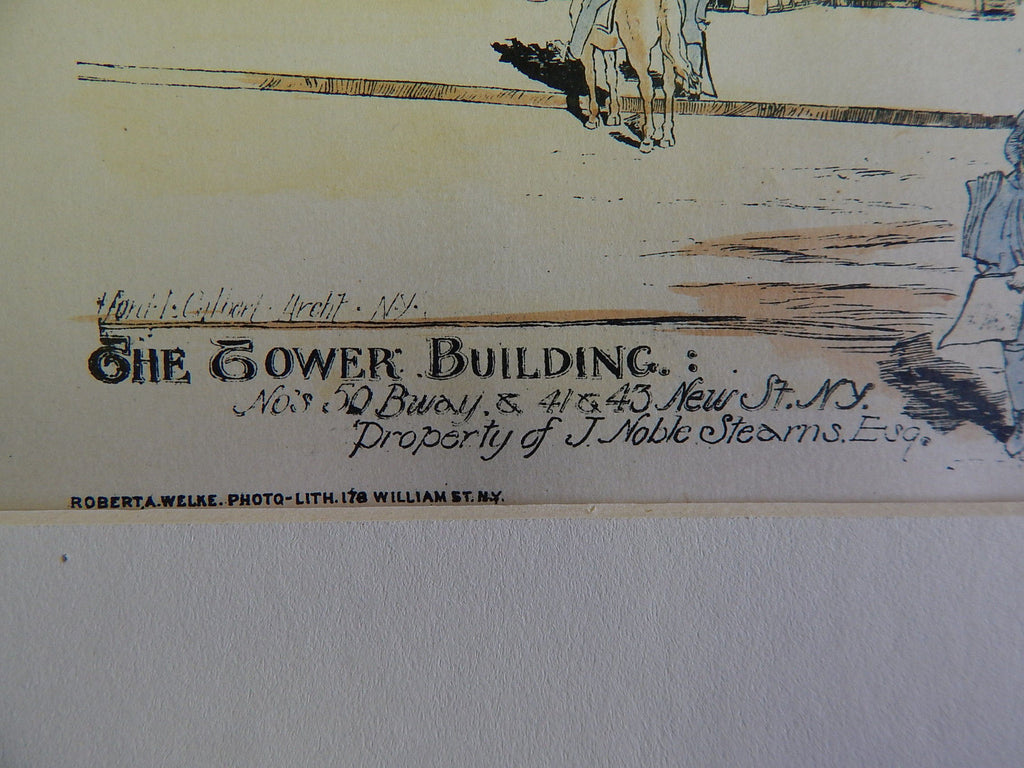 Archt. N.Y.
THE TOWER BUILDING. :
No's 50 Bway. & 41 & 43 New St. N.Y.
Property of J. Noble Stearns. Esq.
ROBERT.A.WELKE. PHOTO-LITH. 178 WILLIAM ST. N.Y.